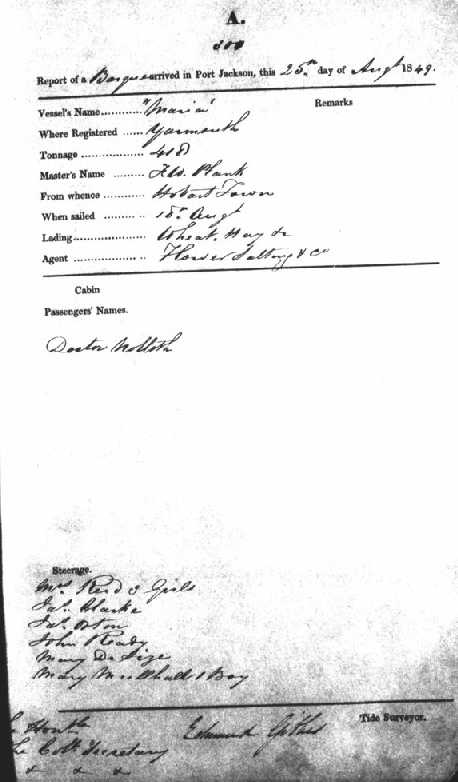 A.
Report of a Barque arrived in Port Jackson, this 25th day of Augt 1849.
Remarks
Vessel's Name "Maria"
Where Registered Yarmouth
Tonnage 418
Master's Name Plank
From whence Hobart Town
When sailed 18th Augt
Lading Wheat, Hay &c
Agent Flower Salting & Co
Cabin
Passengers' Names.
Doctor Nolloth
Steerage.
Mrs Reid 3 Girls
Jas. Clarke
Jas. Orton
John Ready
Mary
Mary 1 Boy
Edmund Tide Surveyor.
Secretary